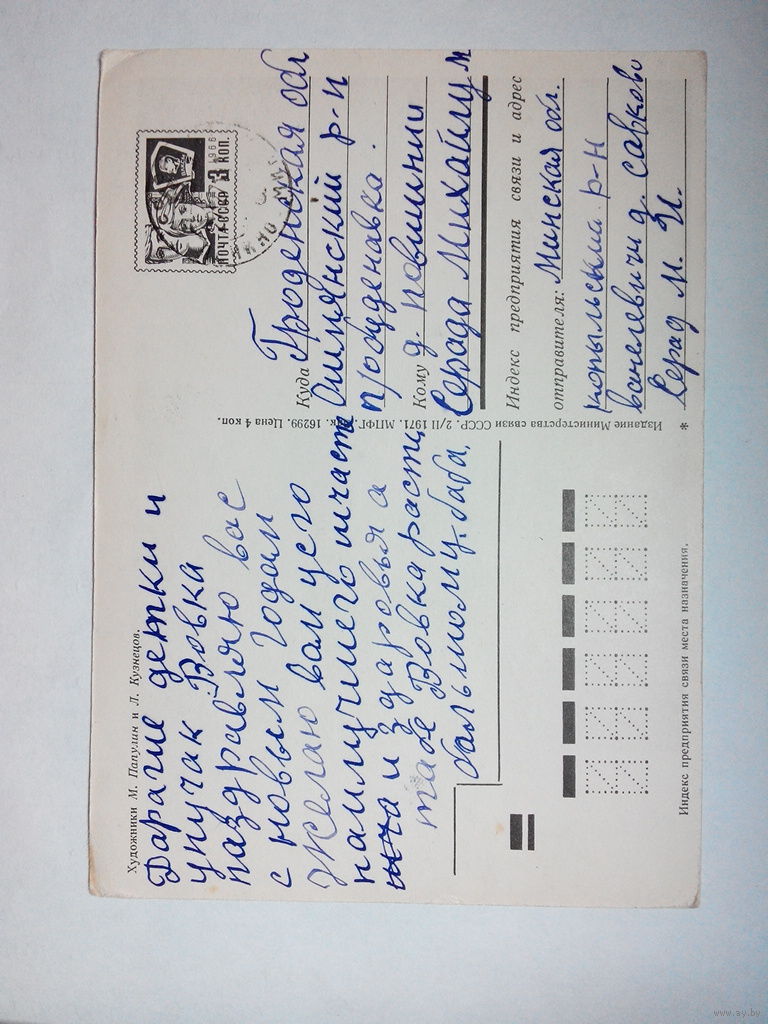 Художники М. Папулин и Л. Кузнецов.
Дарагие детки и
унучак Вовка
паздравляю вас
с новым годам
Желаю вам усего
наилучшего шчасте
и здаровья а
табе Вовка расти
бальшому. баба.
Издание Министерства связи СССР. 2/II 1971. МПФГ. Зак. 16299. Цена 4 коп.
ПОЧТА СССР 3 КОП.
1966
Куда Гроденская обл
Ошмянский р-н
п/о жуденавка.
Кому д. повишнии
Серада Михаилу м
Индекс предприятия связи и адрес
отправителя: Минская обл.
Копыльский р-н
ванелевичи д. савково
Серад М. И.
*
Индекс предприятия связи места назначения.
www.ay.by